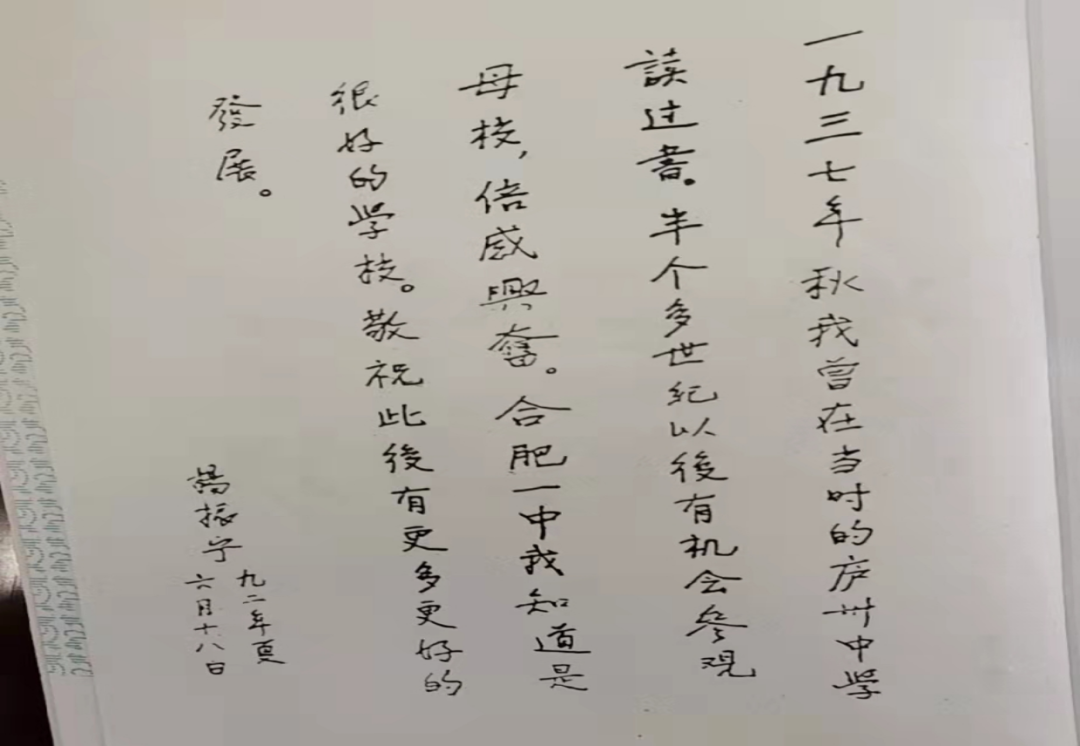 一九三七年秋我曾在当时的庐州中学
读过書。半个多世纪以後有机会參观
母校，倍感興奮。合肥一中我知道是
很好的学校。敬祝此後有更多更好的
發展。
楊振宁
九二年夏
六月十八日